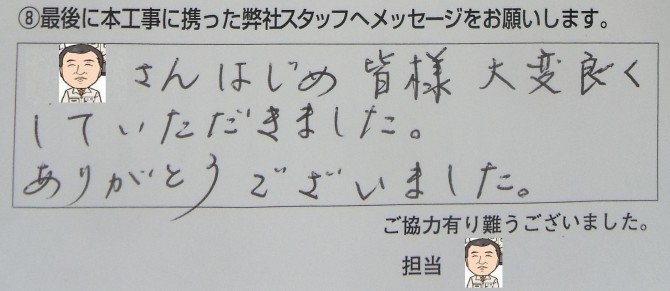 ⑧最後に本工事に携った弊社スタッフへメッセージをお願いします。
さんはじめ 皆様 大変良く
していただきました。
ありがとうございました。
ご協力有り難うございました。
担当